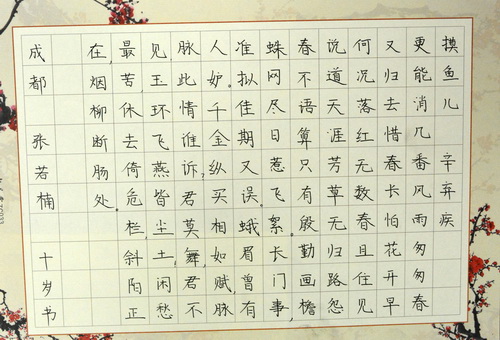 摸鱼儿 辛弃疾
更能消几番风雨匆匆春
又归去惜春长怕花开早
何况落红无数春且住见
说道天涯芳草无归路怨
春不语算只有殷勤画檐
蛛网尽日惹飞絮。长门事,
准拟佳期又误。蛾眉曾有
人妒。千金纵买相如赋,脉
脉此情谁诉,君莫舞,君不
见,玉环飞燕皆尘土,闲愁
最苦,休去倚危栏,斜阳正
在,烟柳断肠处。
成都 张若楠 十岁书